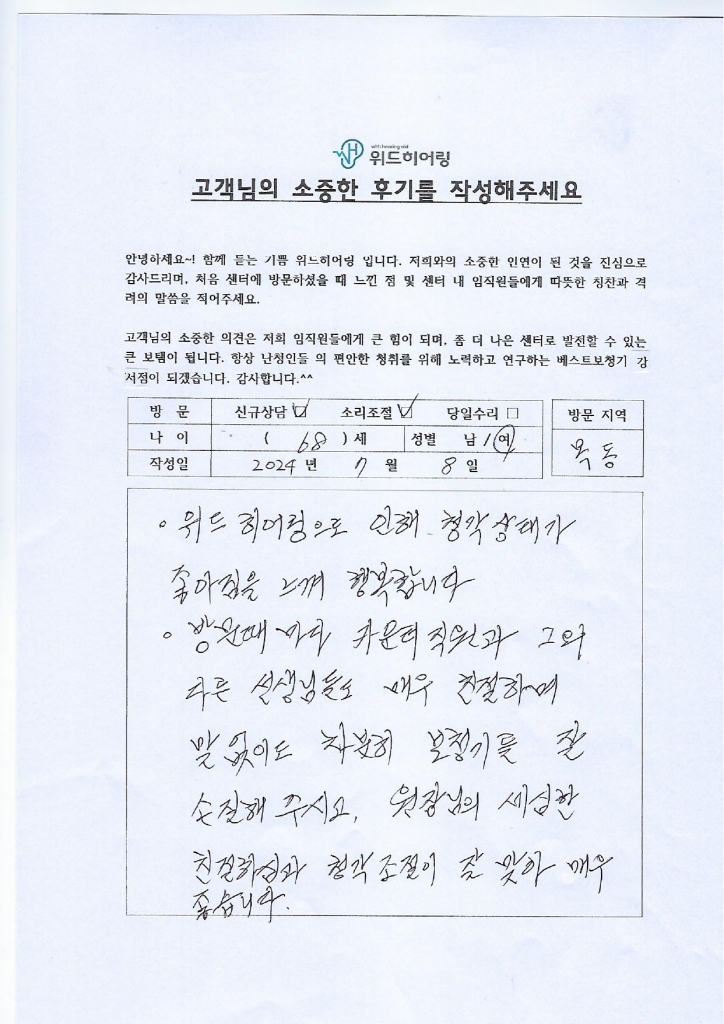 with hearing aid
위드히어링
고객님의 소중한 후기를 작성해주세요
안녕하세요~! 함께 듣는 기쁨 위드히어링 입니다. 저희와의 소중한 인연이 된 것을 진심으로
감사드리며, 처음 센터에 방문하셨을 때 느낀 점 및 센터 내 임직원들에게 따뜻한 칭찬과 격
려의 말씀을 적어주세요.
고객님의 소중한 의견은 저희 임직원들에게 큰 힘이 되며, 좀 더 나은 센터로 발전할 수 있는
큰 보탬이 됩니다. 항상 난청인들 의 편안한 청취를 위해 노력하고 연구하는 베스트보청기 강
서점이 되겠습니다. 감사합니다.^^
방 문 신규상담 ☑ 소리조절 ☑ 당일수리 □ 방문 지역
나 이 ( 68 ) 세 성별 남 / 여 목동
작성일 2024 년 7 월 8 일
◦ 위드 히어링으로 인해 청각상태가
좋아짐을 느껴 행복합니다
◦ 방문때 마다 카운터 직원과 그외
다른 선생님들도 매우 친절하며
말 없이도 차분히 보청기를 잘
손질해 주시고, 원장님의 세심한
친절하심과 청각 조절이 잘 맞아 매우
좋습니다.